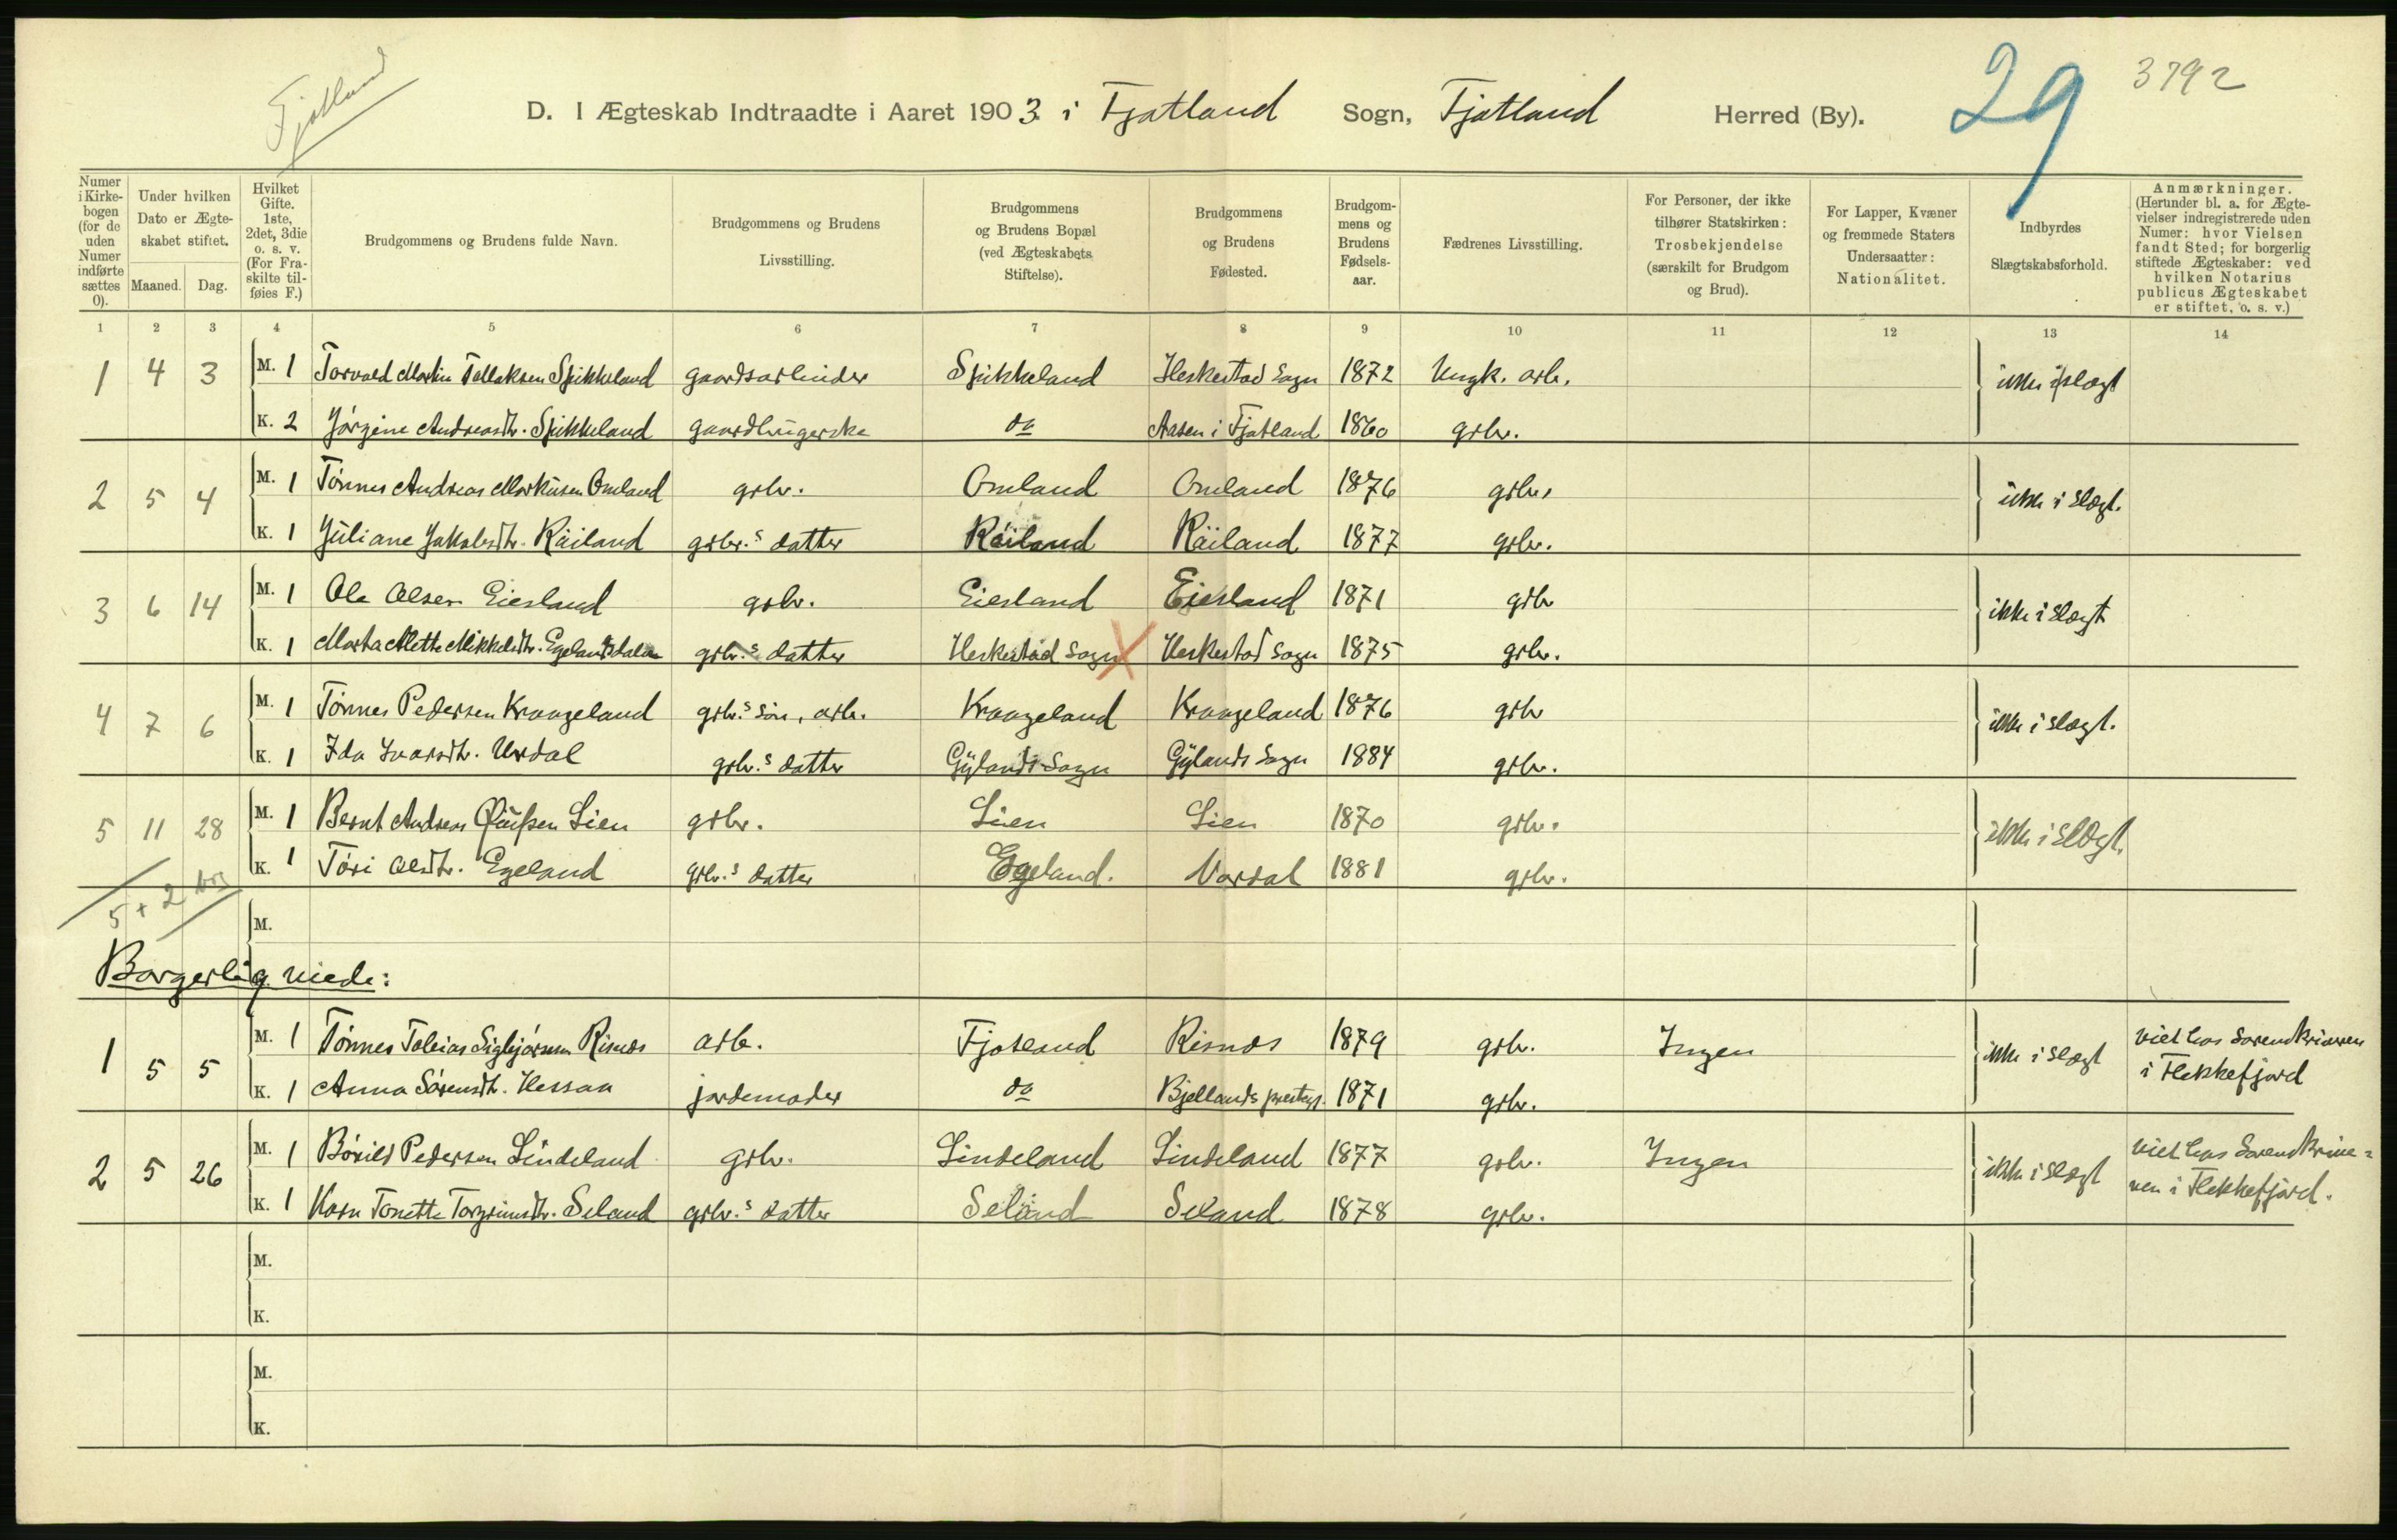 Fjotland
29
3792
D. I Ægteskab Indtraadte i Aaret 1903 i Fjotland Sogn, Fjotland Herred (By).
Numer i Kirkebogen (for de uden Numer indførte sættes 0).
Under hvilken Dato er Ægteskabet stiftet.
Maaned. Dag.
Hvilket Gifte. 1ste, 2det, 3die o. s. v. (For Fraskilte tilføies F.)
Brudgommens og Brudens fulde Navn.
Brudgommens og Brudens Livsstilling.
Brudgommens og Brudens Bopæl (ved Ægteskabets Stiftelse).
Brudgommens og Brudens Fødested.
Brudgommens og Brudens Fødselsaar.
Fædrenes Livsstilling.
For Personer, der ikke tilhører Statskirken: Trosbekjendelse (særskilt for Brudgom og Brud).
For Lapper, Kvæner og fremmede Staters Undersaatter: Nationalitet.
Indbyrdes Slægtskabsforhold.
Anmærkninger. (Herunder bl. a. for Ægtevielser indregistrerede uden Numer: hvor Vielsen fandt Sted; for borgerlig stiftede Ægteskaber: ved hvilken Notarius publicus Ægteskabet er stiftet, o. s. v.)
1 2 3 4 5 6 7 8 9 10 11 12 13 14
1 4 3 M. 1 Torvald Martin Tollaksen Spikkeland gaardsarbeider Spikkeland Heskestad Sogn 1872 Ungk. arb. ikke i slægt
K. 2 Jørgine Andreasdtr. Spikkeland gaardbrugerske do Aasen i Fjotland 1860 grbr.
2 5 4 M. 1 Tønnes Andreas Markusen Omland grbr. Omland Omland 1876 grbr. ikke i Slægt.
K. 1 Juliane Jakobsdtr. Räiland grbr.s datter Räiland Räiland 1877 grbr.
3 6 14 M. 1 Ole Olsen Eiesland grbr. Eiesland Eiesland 1871 grbr ikke i Slægt
K. 1 Marta Mette Mikkelsdtr. Egelandsdalen grbr.s datter Heskestad Sogn Heskestad Sogn 1875 grbr.
4 7 6 M. 1 Tønnes Pedersen Kraageland grbr.s søn, arb. Kraageland Kraageland 1876 grbr ikke i slægt.
K. 1 Ida Ivarsdtr. Urdal grbr.s datter Gylands Sogn Gylands Sogn 1884 grbr.
5 11 28 M. 1 Bernt Andreas Lien grbr. Lien Lien 1870 grbr. ikke i Slægt.
K. 1 Tøri Olsdtr. Egeland grbr.s datter Egeland. 1881 grbr.
5 + 2 borg
M.
Borgerlig viede:
1 5 5 M. 1 Tønnes Tobias Sigbjørnsen Risnes arb. Fjotland Risnes 1879 grbr. Ingen ikke i Slægt viet hos Sorenskriveren
K. 1 Anna Sørensdtr. Hessaa jordemoder do Bjellands prestegj. 1871 grbr. i Flekkefjord
2 5 26 M. 1 Børild Pedersen Lindeland grbr. Lindeland Lindeland 1877 grbr. Ingen ikke i slægt viet hos Sorenskrive=
K. 1 Karn Tonette Torgrimsdtr. Seland grbr.s datter Seland Seland 1878 grbr. ren i Flekkefjord.
M.
K.
M.
K.